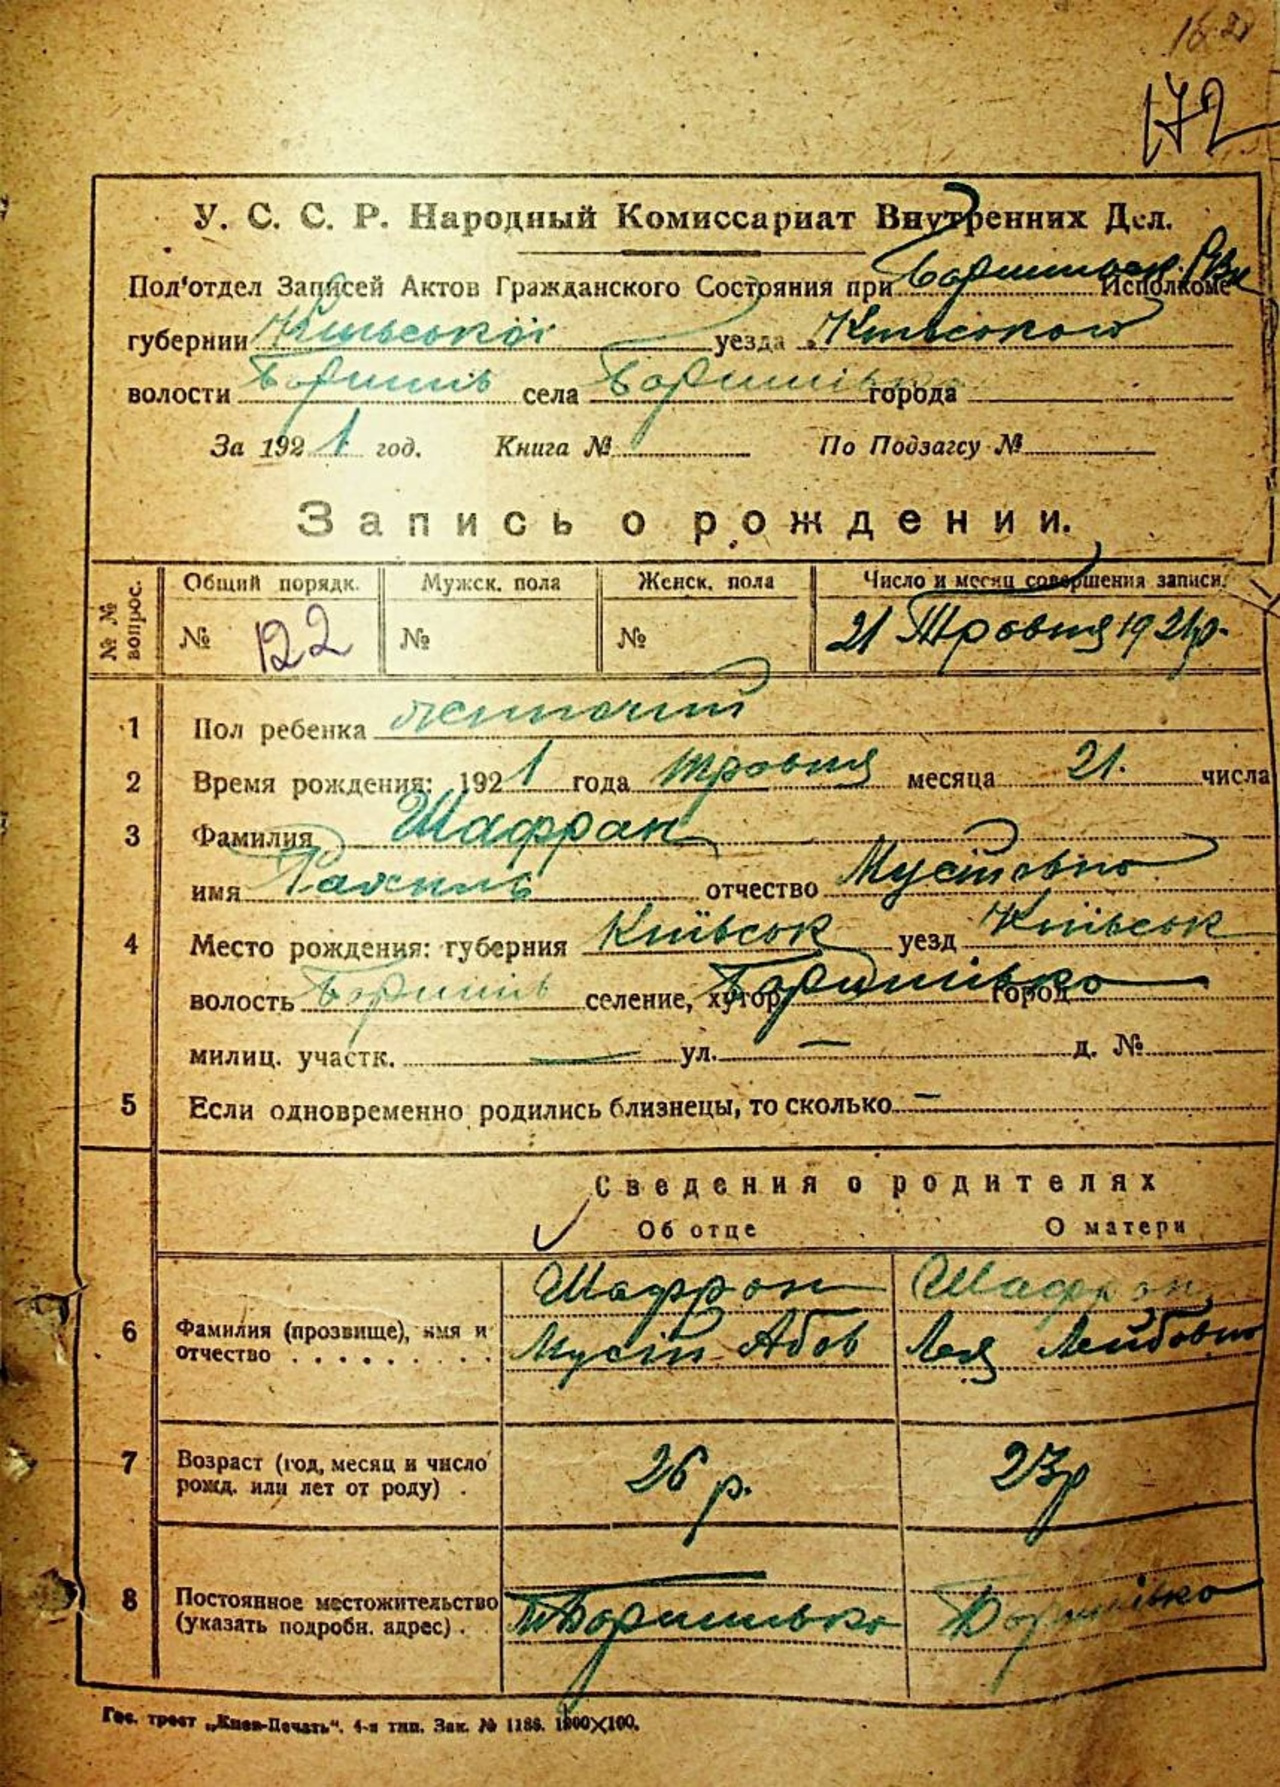 172
У. С. С. Р. Народный Комиссариат Внутренних Дел.
Под'отдел Записей Актов Гражданского Состояния при Исполкоме
губернии Київської уезда Київського
волости села города
За 1921 год. Книга № По Подзагсу №
Запись о рождении.
№ № вопрос. Общий порядк. Мужск. пола Женск. пола Число и месяц совершения записи.
№ 122 № № 21 Травня 1921р.
1 Пол ребенка жиночий
2 Время рождения: 1921 года травня месяца 21. числа
3 Фамилия Шафран
имя Рахиль отчество Мусіївна
4 Место рождения: губерния Київськ уезд Київськ
волость селение, хутор город
милиц. участк. — ул. — д. №
5 Если одновременно родились близнецы, то сколько —
Сведения о родителях
Об отце О матери
Шафран Шафран
6 Фамилия (прозвище), имя и отчество Мусій Абов Лея Лейбовна
7 Возраст (год, месяц и число рожд. или лет от роду) . 26 р. 23р
8 Постоянное местожительство (указать подробн. адрес) .
Гос. трест „Киев-Печать“. 4-я тип. Зак. № 1186. 1200×100.